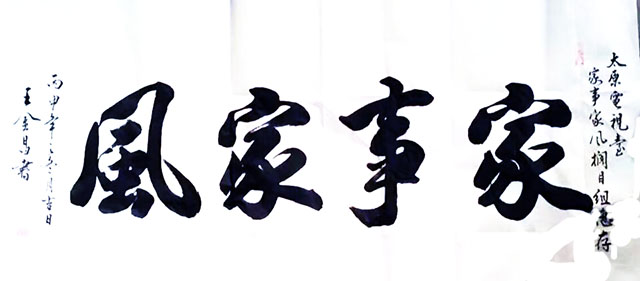 太原電視臺
家事家风欄目組惠存
家事家風
丙申年冬月吉日
王金昌書